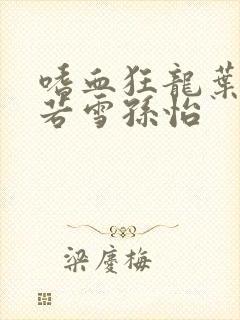 嗜血狂龍葉
若雪孫怡
梁慶梅